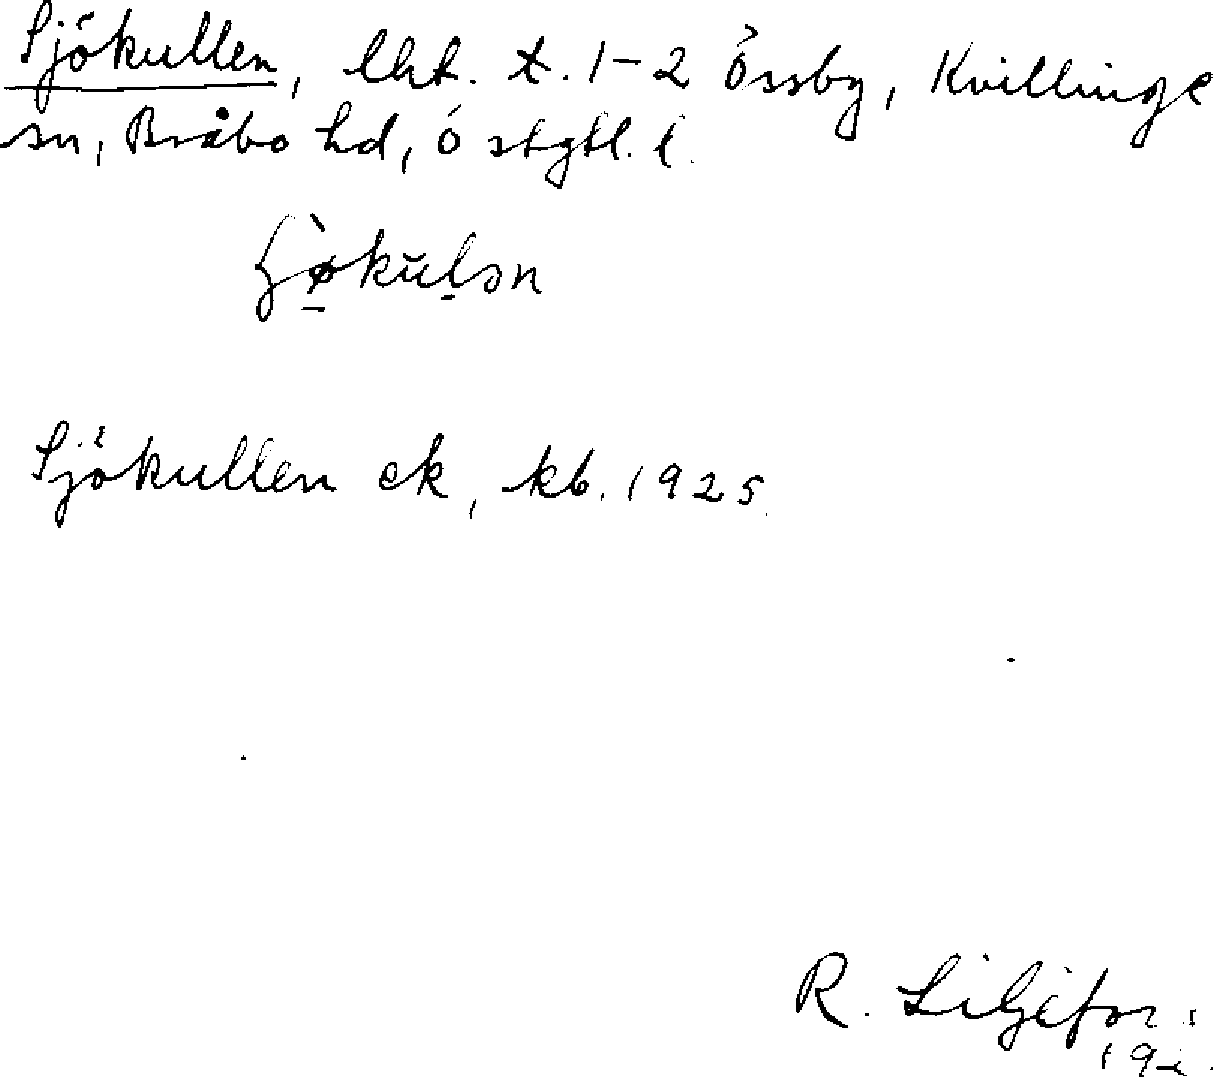 Sjökullen, lht. t. 1-2 Össby, Kvillinge
sn, Bråbo hd, Östgtl. l.
Sjökullen ek, kb. 1925
R. Liljefor